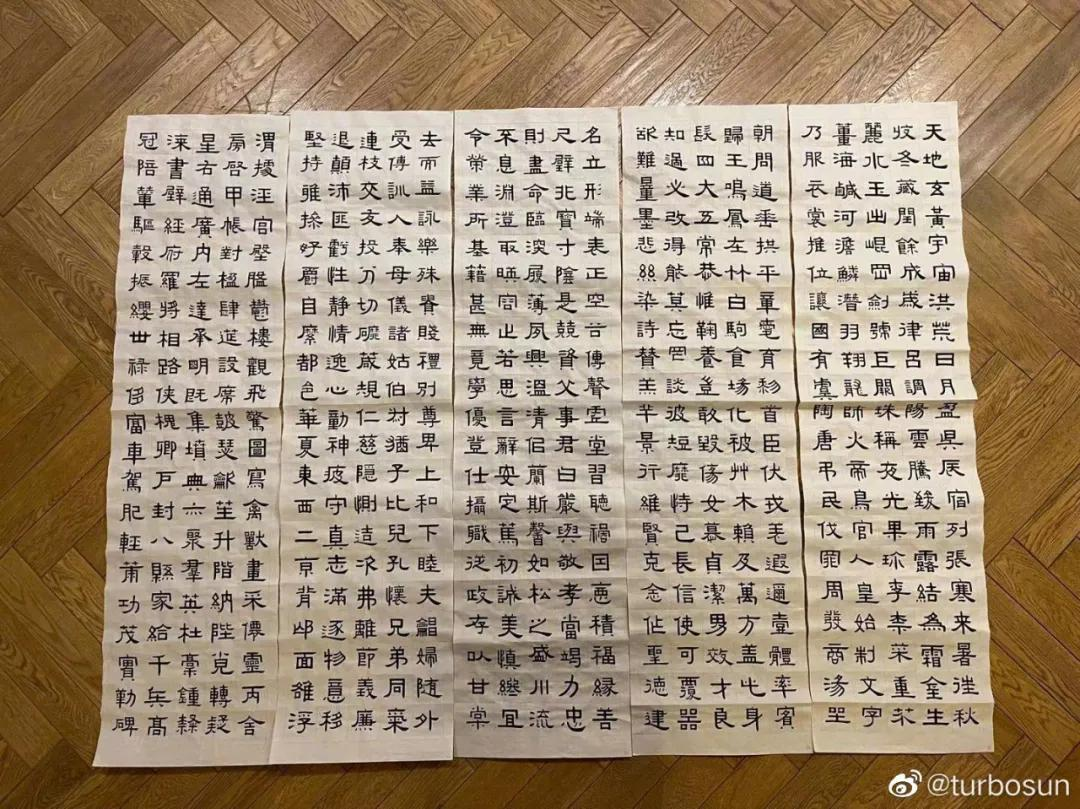 天地玄黃宇宙洪荒日月盈昃辰宿列張寒来暑往秋
收冬藏閏餘成歲律呂調陽雲騰致雨露結為霜金生
麗水玉出崐岡劍號巨闕珠稱夜光果珍李柰菜重芥
薑海鹹河澹鱗潛羽翔龍師火帝鳥官人皇始制文字
乃服衣裳推位讓國有虞陶唐弔民伐罪周發商湯坐
朝問道垂拱平章愛育黎首臣伏戎羌遐邇壹體率賓
歸王鳴鳳在竹白駒食場化被艸木賴及萬方蓋此身
髮四大五常恭惟鞠養豈敢毀傷女慕貞潔男效才良
知過必改得能莫忘罔談彼短靡恃己長信使可覆器
欲難量墨悲絲染詩贊羔羊景行維賢克念作聖德建
名立形端表正空谷傳聲虛堂習聽禍因惡積福緣善
尺璧非寶寸陰是競資父事君曰嚴與敬孝當竭力忠
則盡命臨深履薄夙興溫凊佀蘭斯馨如松之盛川流
不息淵澄取暎容止若思言辭安定篤初誠美慎終宜
令榮業所基藉甚無竟學優登仕攝職從政存以甘棠
去而益詠樂殊貴賤禮別尊卑上和下睦夫唱婦随外
受傅訓入奉母儀諸姑伯叔猶子比兒孔懷兄弟同氣
連枝交友投分切磨箴規仁慈隱惻造次弗離節義廉
退顛沛匪虧性静情逸心動神疲守真志滿逐物意移
堅持雅操好爵自縻都邑華夏東西二京背邙面雒浮
渭據涇宮殿盤鬱樓觀飛驚圖寫禽獸畫采僊靈丙舍
傍啓甲帳對楹肆筵設席鼓瑟龡笙升階納陛弁轉疑
星右通廣内左達承明既集墳典亦聚羣英杜稾鍾隸
漆書壁經府羅將相路俠槐卿户封八縣家給千兵高
冠陪輦驅轂振纓世禄侈富車駕肥輕策功茂實勒碑
@turbosun